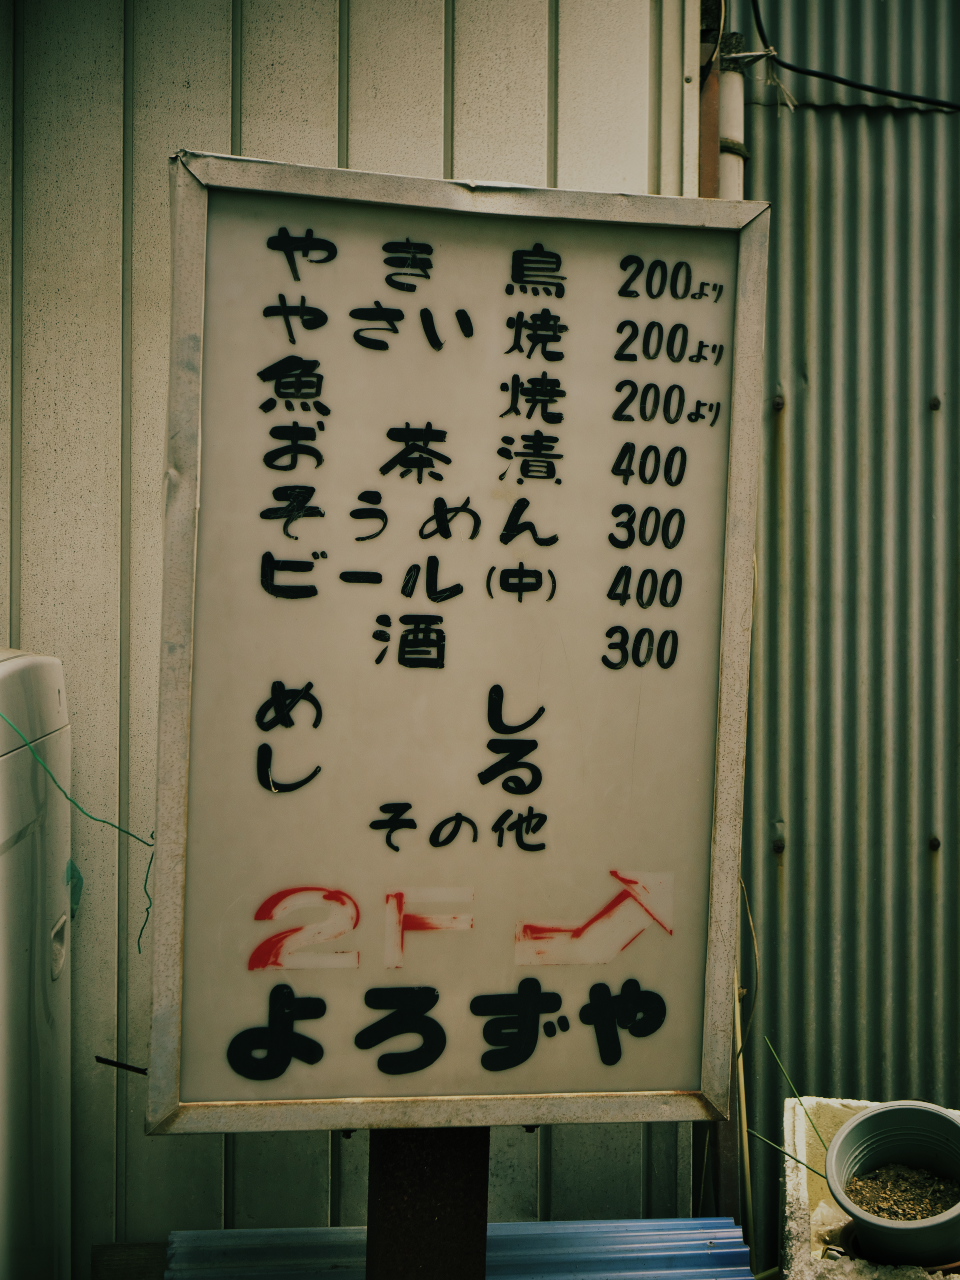 やき鳥 200より
やさい焼 200より
魚焼 200より
お茶漬 400
そうめん 300
ビール(中) 400
酒 300
めし しる
その他
2F
よろずや